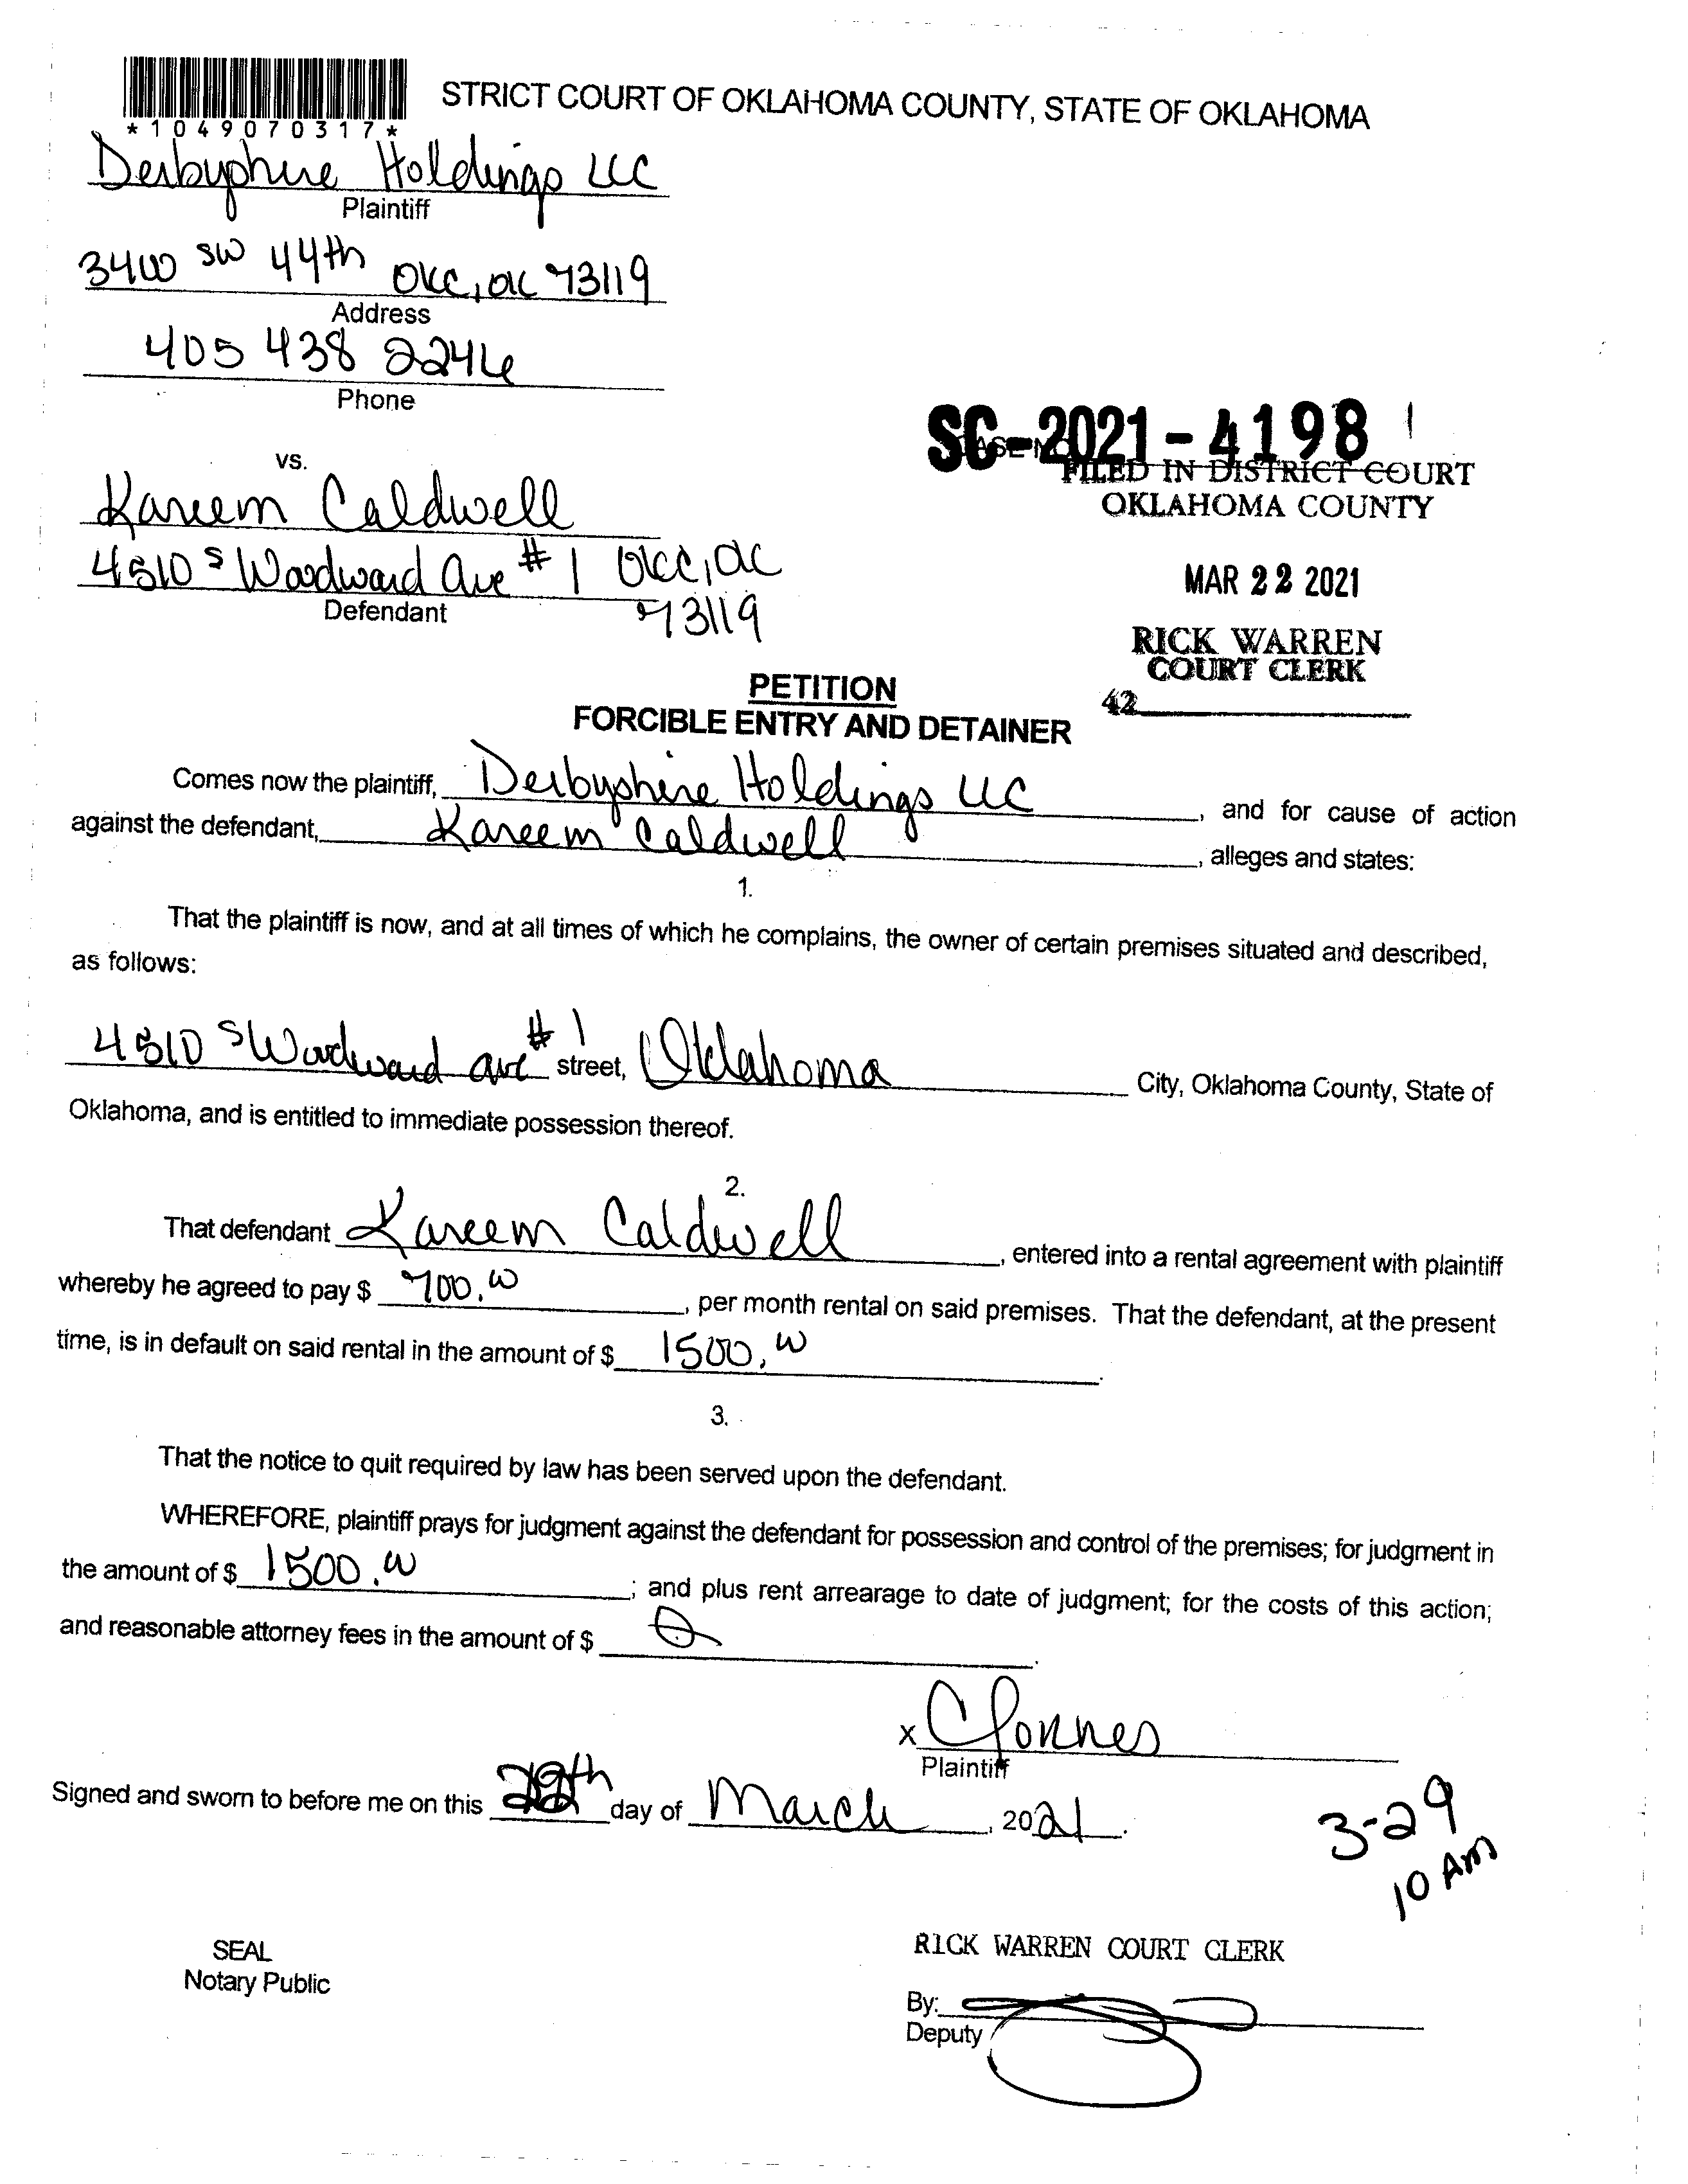 *1049070317*
STRICT COURT OF OKLAHOMA COUNTY, STATE OF OKLAHOMA
Derbyshire Holdings LLC
Plaintiff
3400 SW 44th OKC, OK 73119
Address
405 438 2246
Phone
SC-2021-4198
FILED IN DISTRICT COURT
OKLAHOMA COUNTY
vs.
Kareem Caldwell
4510 S Woodward Ave #1 OKC, OK
73119
Defendant
MAR 22 2021
RICK WARREN
COURT CLERK
42
PETITION
FORCIBLE ENTRY AND DETAINER
Comes now the plaintiff, Derbyshire Holdings LLC, and for cause of action
against the defendant, Kareem Caldwell, alleges and states:
1.
That the plaintiff is now, and at all times of which he complains, the owner of certain premises situated and described,
as follows:
4510 S Woodward Ave #1 street, Oklahoma City, Oklahoma County, State of
Oklahoma, and is entitled to immediate possession thereof.
2.
That defendant Kareem Caldwell, entered into a rental agreement with plaintiff
whereby he agreed to pay $ 700.00, per month rental on said premises. That the defendant, at the present
time, is in default on said rental in the amount of $ 1500.00.
3.
That the notice to quit required by law has been served upon the defendant.
WHEREFORE, plaintiff prays for judgment against the defendant for possession and control of the premises; for judgment in
the amount of $ 1500.00; and plus rent arrearage to date of judgment; for the costs of this action;
and reasonable attorney fees in the amount of $ 0.
x
Plaintiff
Signed and sworn to before me on this 22th day of March, 2021.
3-29
10 AM
SEAL
Notary Public
RICK WARREN COURT CLERK
By:
Deputy